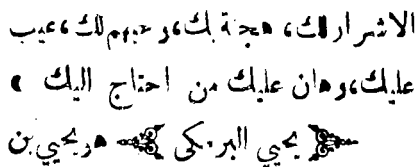 الاشرار لك، هجنة بك، وحبهم لك، عيب
عليك، وهان عليك من احتاج اليك
يحيي البرمكى هو يحيي بن